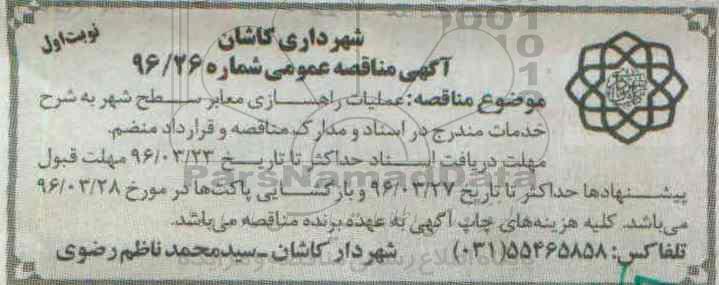 شهرداری کاشان
نوبت اول
آگهی مناقصه عمومی شماره ۹۶/۲۶
موضوع مناقصه: عملیات راهسازی معابر سطح شهر به شرح
خدمات مندرج در اسناد و مدارک مناقصه و قرارداد منضم.
مهلت دریافت اسناد حداکثر تا تاریخ ۹۶/۰۳/۲۳ مهلت قبول
پیشنهادها حداکثر تا تاریخ ۹۶/۰۳/۲۷ و بازگشایی پاکت‌ها در مورخ ۹۶/۰۳/۲۸
می‌باشد. کلیه هزینه‌های چاپ آگهی به عهده برنده مناقصه می‌باشد.
تلفاکس: ۵۵۴۶۵۸۵۸(۰۳۱) شهردار کاشان ـ سیدمحمد ناظم رضوی
ParsNamadData